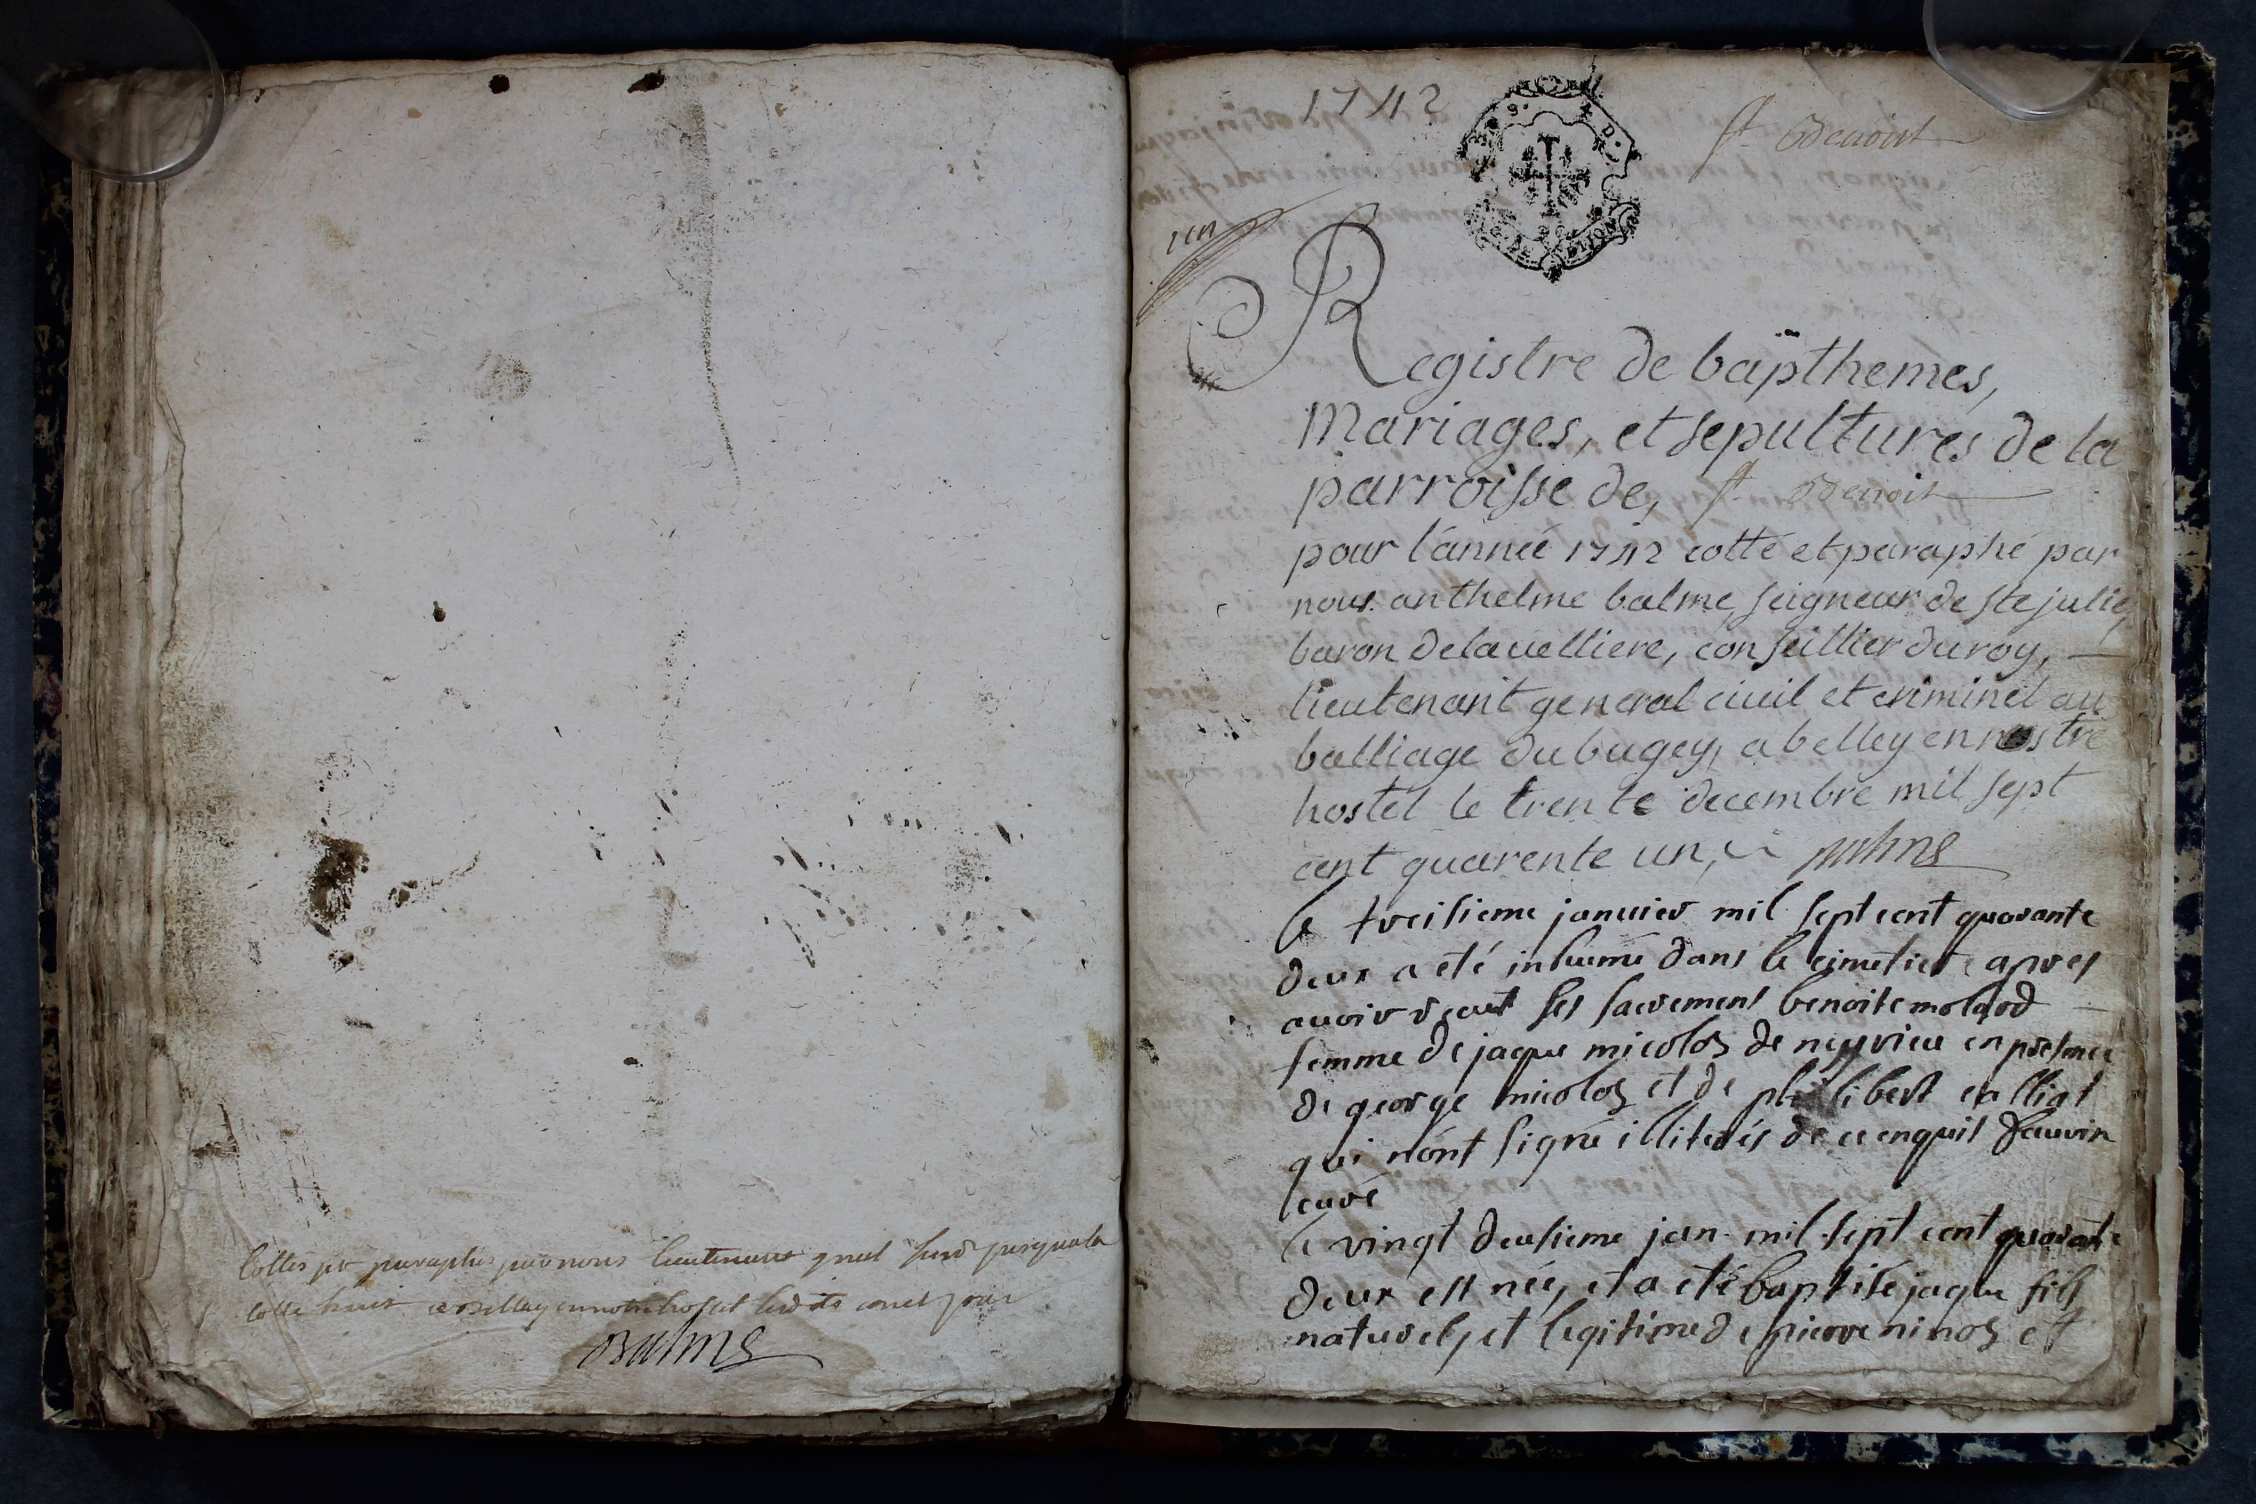 Cottés et paraphés par nous lieutenant gnal susd jusqua la
cotte huit a Belley en notre hostel lesdits an et jour
Balme
1742
st Benoist
un
Registre de bapthemes,
Mariages, et sepultures de la
parroisse de, st Benoit
pour l'année 1742 cotté et paraphé par
nous anthelme balme, seigneur de ste julie,
baron de la velliere, conseillier du roy,
lieutenant general civil et criminel au
balliage du bugey, a belley en nostre
hostel le trente decembre mil sept
cent quarente un,
Balme
le treisieme janvier mil sept cent quarante
deux a eté inhumé dans le cimetiere apres
avoir recut ses sacrement benoite molard
femme de jaque micoloz de neyrieu en presence
de george micoloz et de philibert calliat
qui n'ont signé illiterés de ce enquis fauvin
curé
le vingt deusieme jan. mil sept cent quarante
deux est néé, et a eté baptisé jaque fils
naturel, et legitime de pierre ninoz et